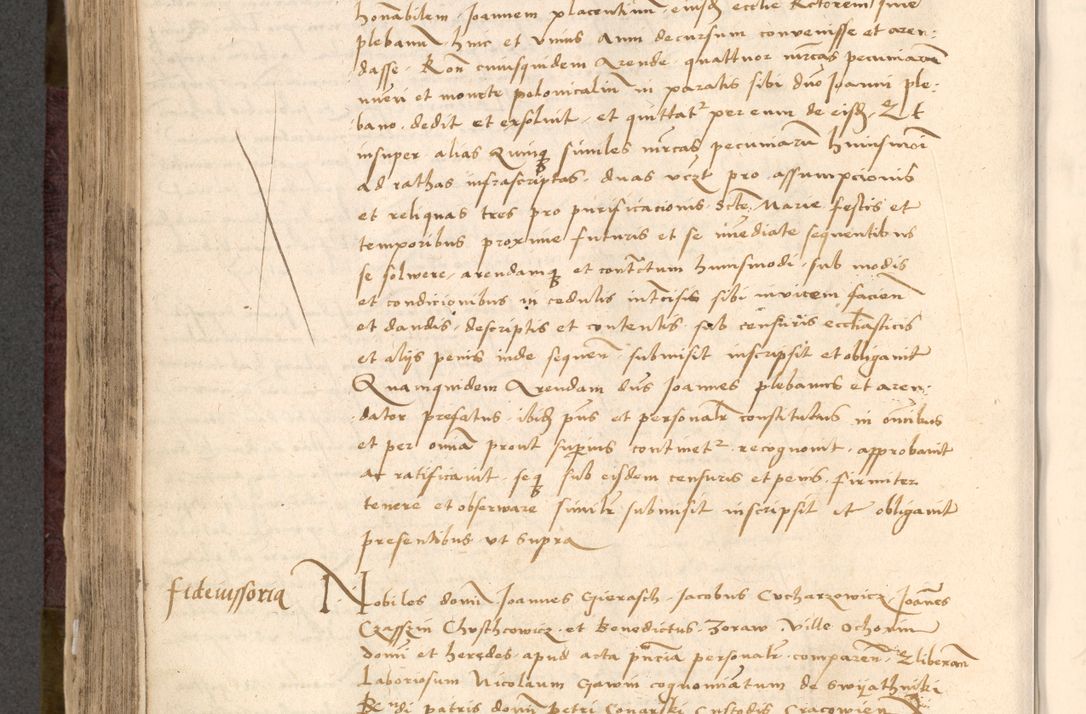 honabilem Joannem placentinum eiusdē ecclie Rectorem sive
plebanū hinc et unius anni decursum convenisse et aren:
dasse. Ron cuiusquidem Arende quattuor mrcas pecuniarū
nūeri et monete polonicalium in paratis sibi dno Joanni ple:
bano dedit et exsolvit et quittatr per eum de eisdē, Et
insuper alias Quinqȝ similes mrcas pecuniarū huiusmōi
ad rathas infrascriptas, duas vczt pro assumpcionis
et reliquas tres pro purificacionis Scte Marie festis et
temporibus proxime futuris et se imediate sequentibus
se solwere, arendamqȝ et contctum huiusmodi sub modis
et condicionibus in cedulis intcisis sibi invicem facien
et dandis descriptis et contentis sub censuris ecclasticis
et alijs penis inde sequen submisit inscripsit et obligavit
Quamquidem Arendam dns Joannes plebanus et aren:
dator prefatus ibidē pns et personalr constitutus in omibus
et per omia prout supius continetr recognovit approbavit
ac ratificavit seqȝ sub eisdem censuris et penis firmiter
tenere et observare similr submisit inscripsit et obligavit
presentibus ut supra
fideiussoria
Nobiles domi Joannes Gierasch Jacobus Cucharzowicz Joannes
Czasszin Chusthcowicz et Benedictus Zoraw ville Ochonin
domi et heredes apud acta pncia personalr comparen, Et liberam
Laboriosum Nicolaum Gawin cognomiatum de Swyathniki
Rndi patris domi Petri Conarski Custodis Cracowien